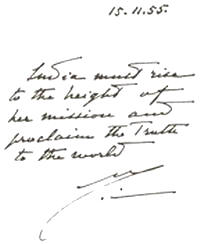 15.11.55.
India must rise
to the height of
her mission and
proclaim the Truth
to the world